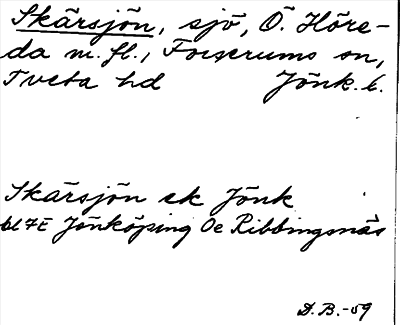 Skärsjön, sjö, Ö. Höre-
da m. fl., Forserums sn,
Tveta hd Jönk. l.
Skärsjön ek Jönk
bl 7E Jönköping Oe Ribbingsnäs
D. B. -59